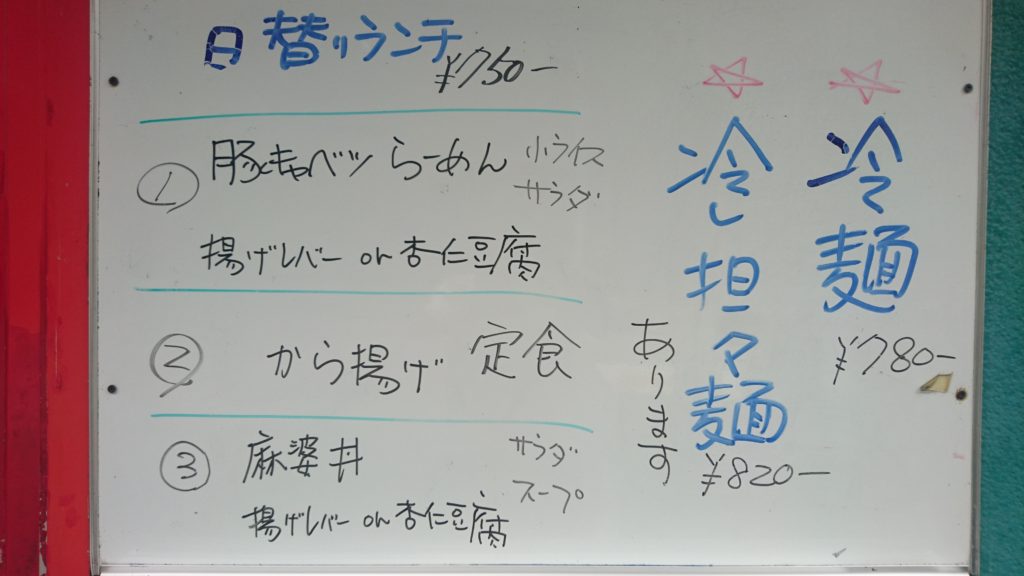 日替りランチ
¥750-
① 豚キャベツらーめん
小ライス
サラダ
揚げレバー or 杏仁豆腐
② から揚げ 定食
③ 麻婆丼
サラダ
スープ
揚げレバー or 杏仁豆腐
☆冷麺
¥780-
☆冷し担々麺
¥820-
あります